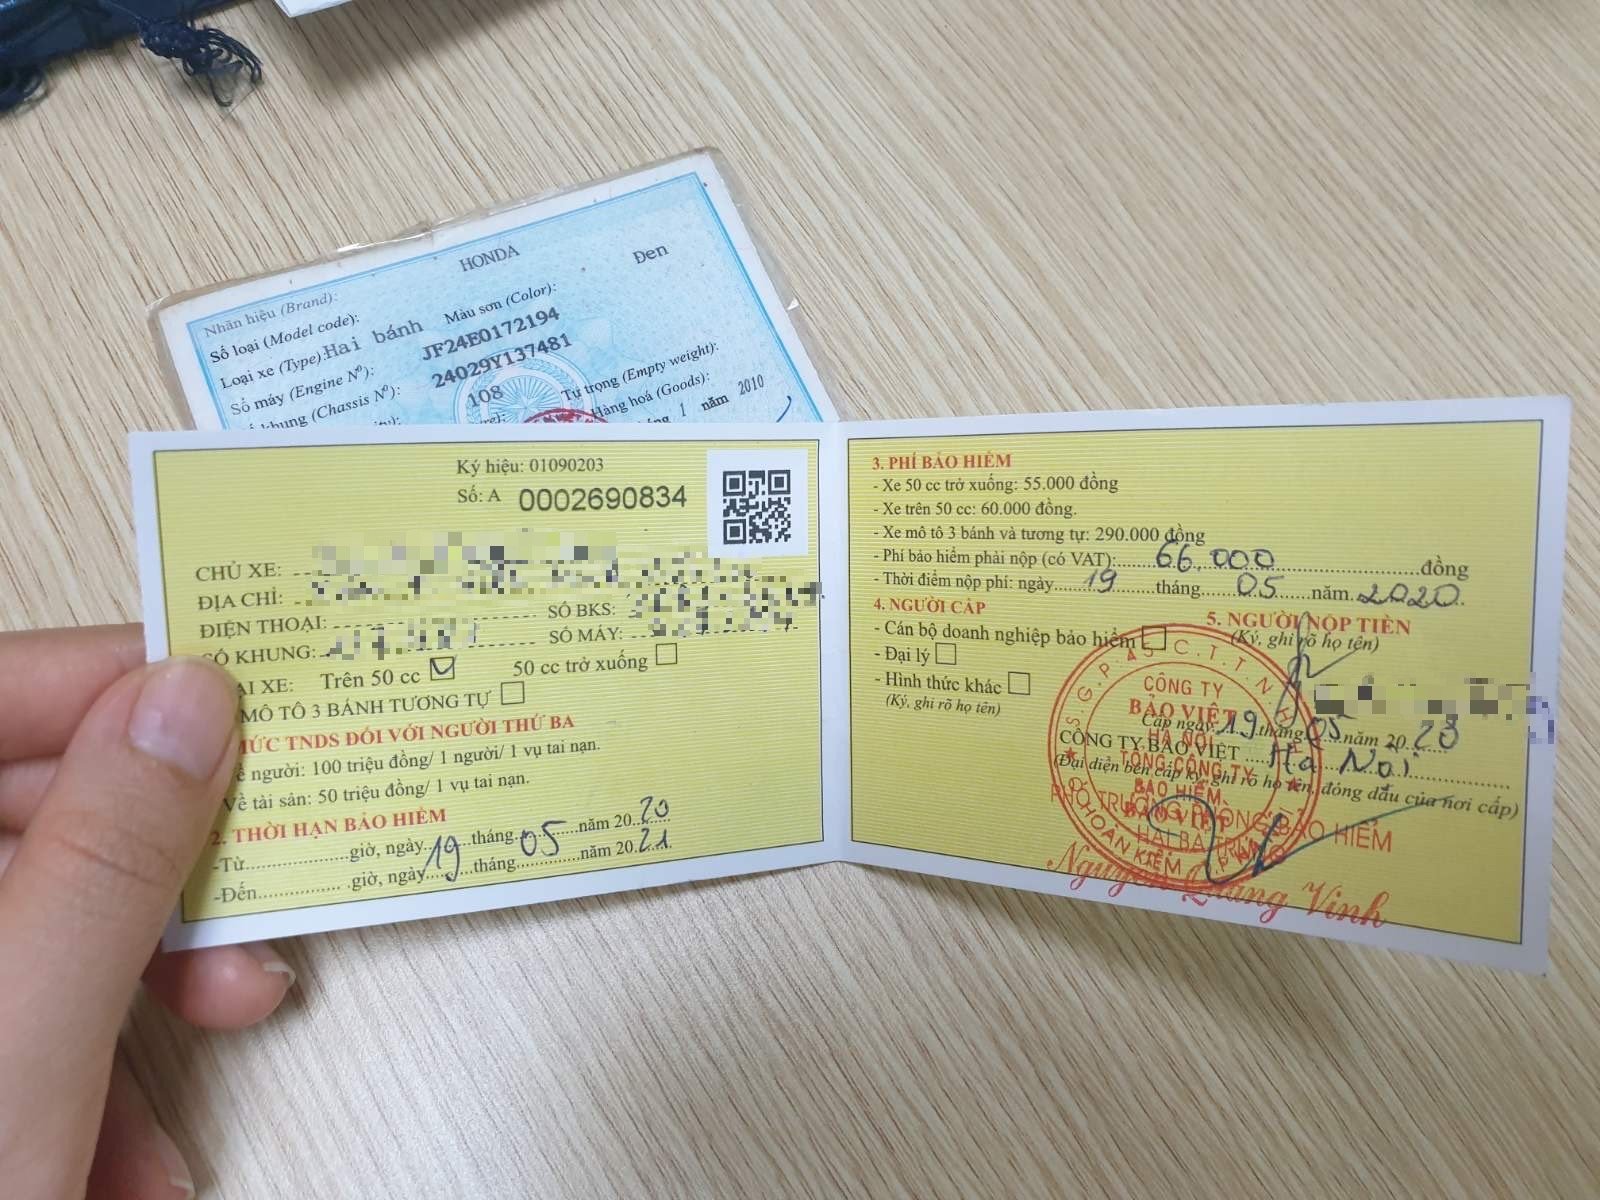 HONDA
Nhãn hiệu (Brand):
Số loại (Model code):
Đen
Màu sơn (Color):
Loại xe (Type): Hai bánh
Số máy (Engine Nº): JF24E0172194
khung (Chassis Nº): 24029Y137481
108
Tự trọng (Empty weight):
Hàng hoá (Goods):
1 năm 2010
Ký hiệu: 01090203
Số: A 0002690834
CHỦ XE:
ĐỊA CHỈ:
ĐIỆN THOẠI: SỐ BKS:
SỐ KHUNG: SỐ MÁY:
XE: Trên 50 cc 50 cc trở xuống
MÔ TÔ 3 BÁNH TƯƠNG TỰ
MỨC TNDS ĐỐI VỚI NGƯỜI THỨ BA
người: 100 triệu đồng/ 1 người/ 1 vụ tai nạn.
Về tài sản: 50 triệu đồng/ 1 vụ tai nạn.
2. THỜI HẠN BẢO HIỂM
-Từ.................giờ, ngày 19 tháng 05 năm 2020
-Đến...............giờ, ngày tháng năm 2021
3. PHÍ BẢO HIỂM
- Xe 50 cc trở xuống: 55.000 đồng
- Xe trên 50 cc: 60.000 đồng.
- Xe mô tô 3 bánh và tương tự: 290.000 đồng
- Phí bảo hiểm phải nộp (có VAT): 66,000 đồng
- Thời điểm nộp phí: ngày 19 tháng 05 năm 2020
4. NGƯỜI CẤP
- Cán bộ doanh nghiệp bảo hiểm
- Đại lý
- Hình thức khác
(Ký, ghi rõ họ tên)
5. NGƯỜI NỘP TIỀN
(Ký, ghi rõ họ tên)
Cấp ngày 19 tháng 05 năm 2020
CÔNG TY BẢO VIỆT Hà Nội
(Đại diện bên cấp ký, ghi rõ họ tên, đóng dấu của nơi cấp)
CÔNG TY
BẢO VIỆT
HÀ NỘI
TỔNG CÔNG TY
BẢO HIỂM
BẢO VIỆT
HOÀN KIẾM
PHÓ TRƯỞNG PHÒNG BẢO HIỂM
HAI BÀ TRƯNG
Nguyễn Quang Vinh